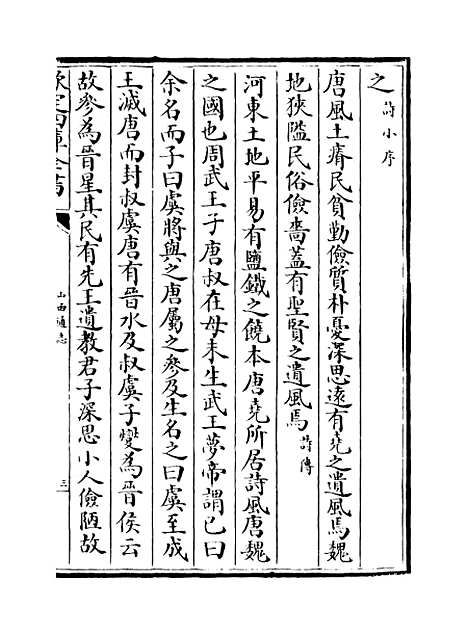 之詩小序
唐風土瘠民貧勤儉質朴憂深思遠有堯之遺風焉魏
地狹隘民俗儉嗇蓋有聖賢之遺風焉詩傳
河東土地平易有鹽鐵之饒本唐堯所居詩風唐魏
之國也周武王子唐叔在母未生武王夢帝謂已曰
余名而子曰虞將與之唐屬之參及生名之曰虞至成
王滅唐而封叔虞唐有晉水及叔虞子燮為晉侯云
故參為晉星其民有先王遺教君子深思小人儉陋故
欽定四庫全書
山西通志
三